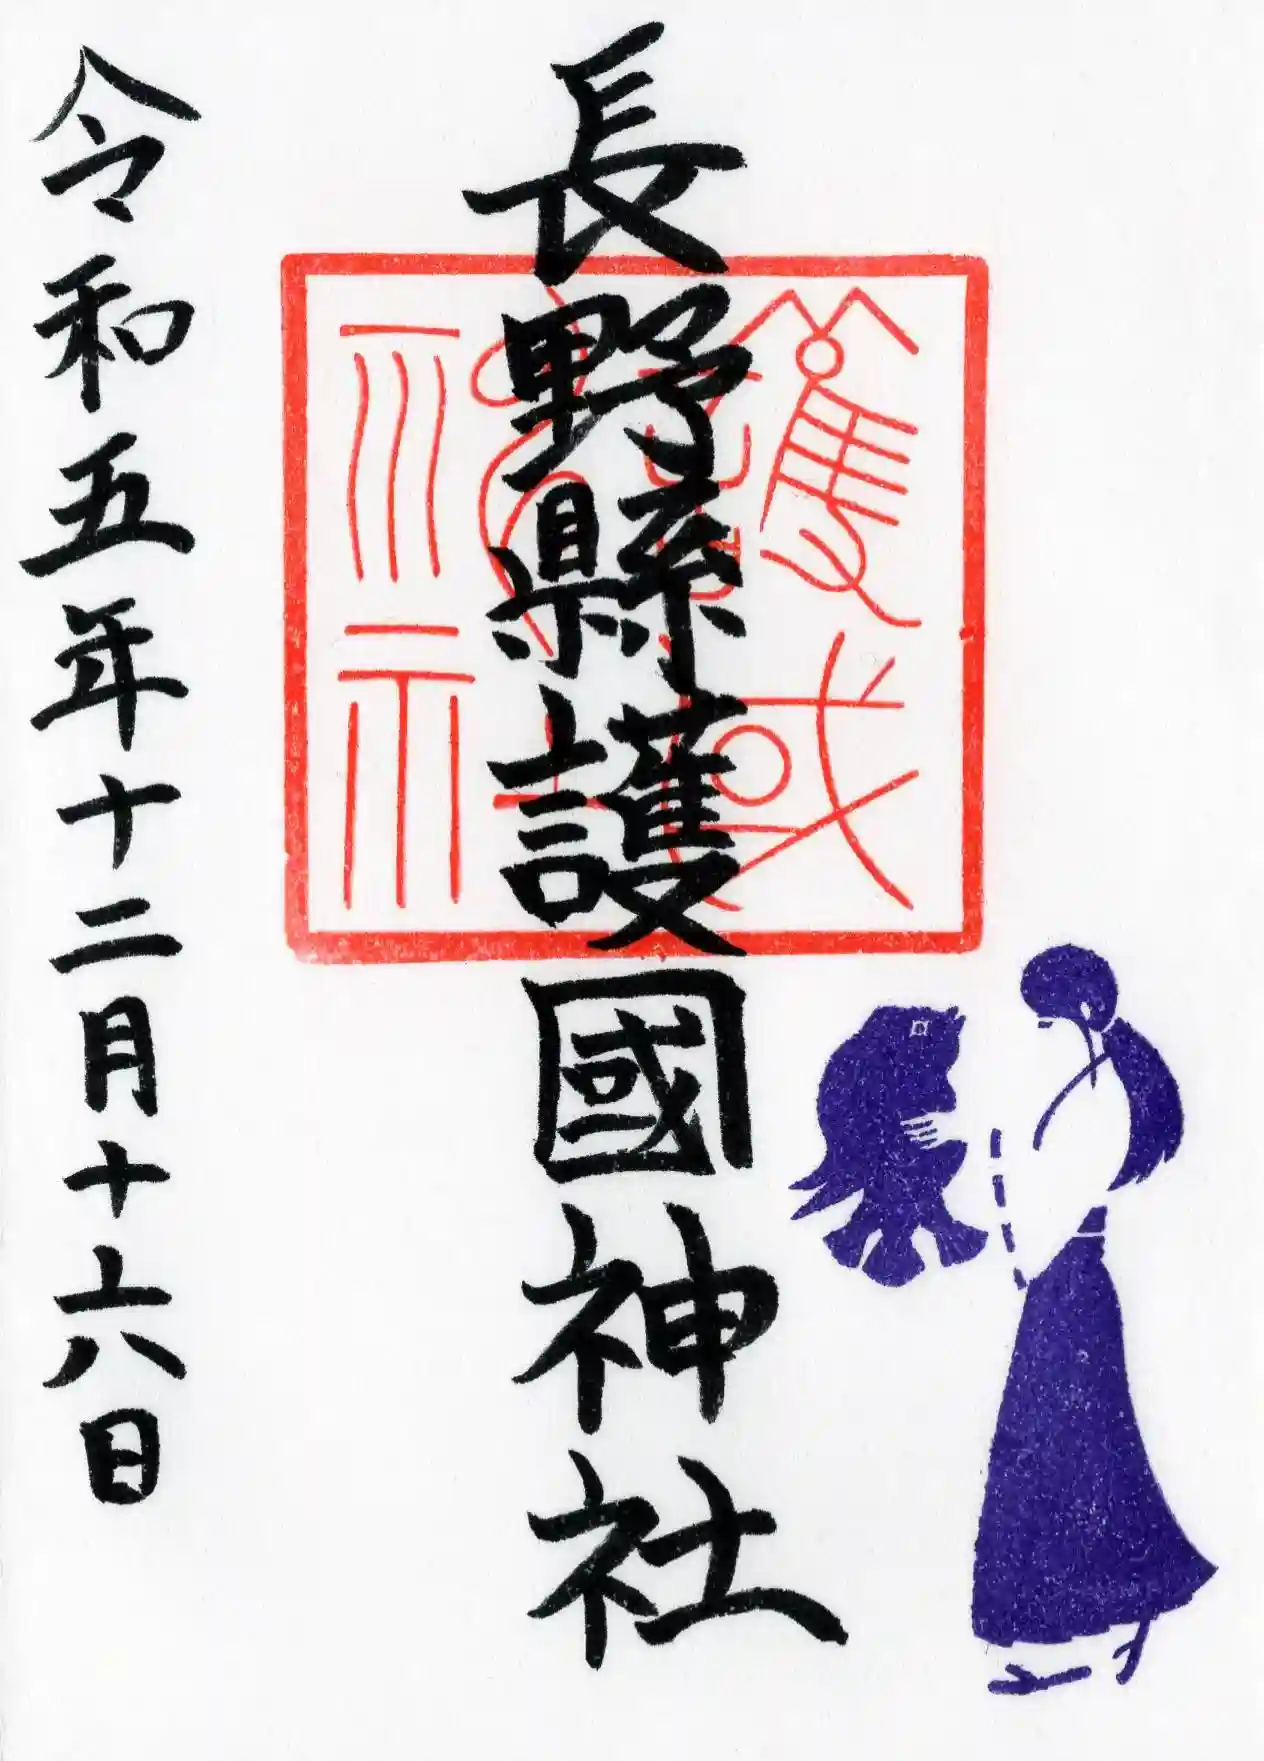 長野縣護國神社
令和五年十二月十六日